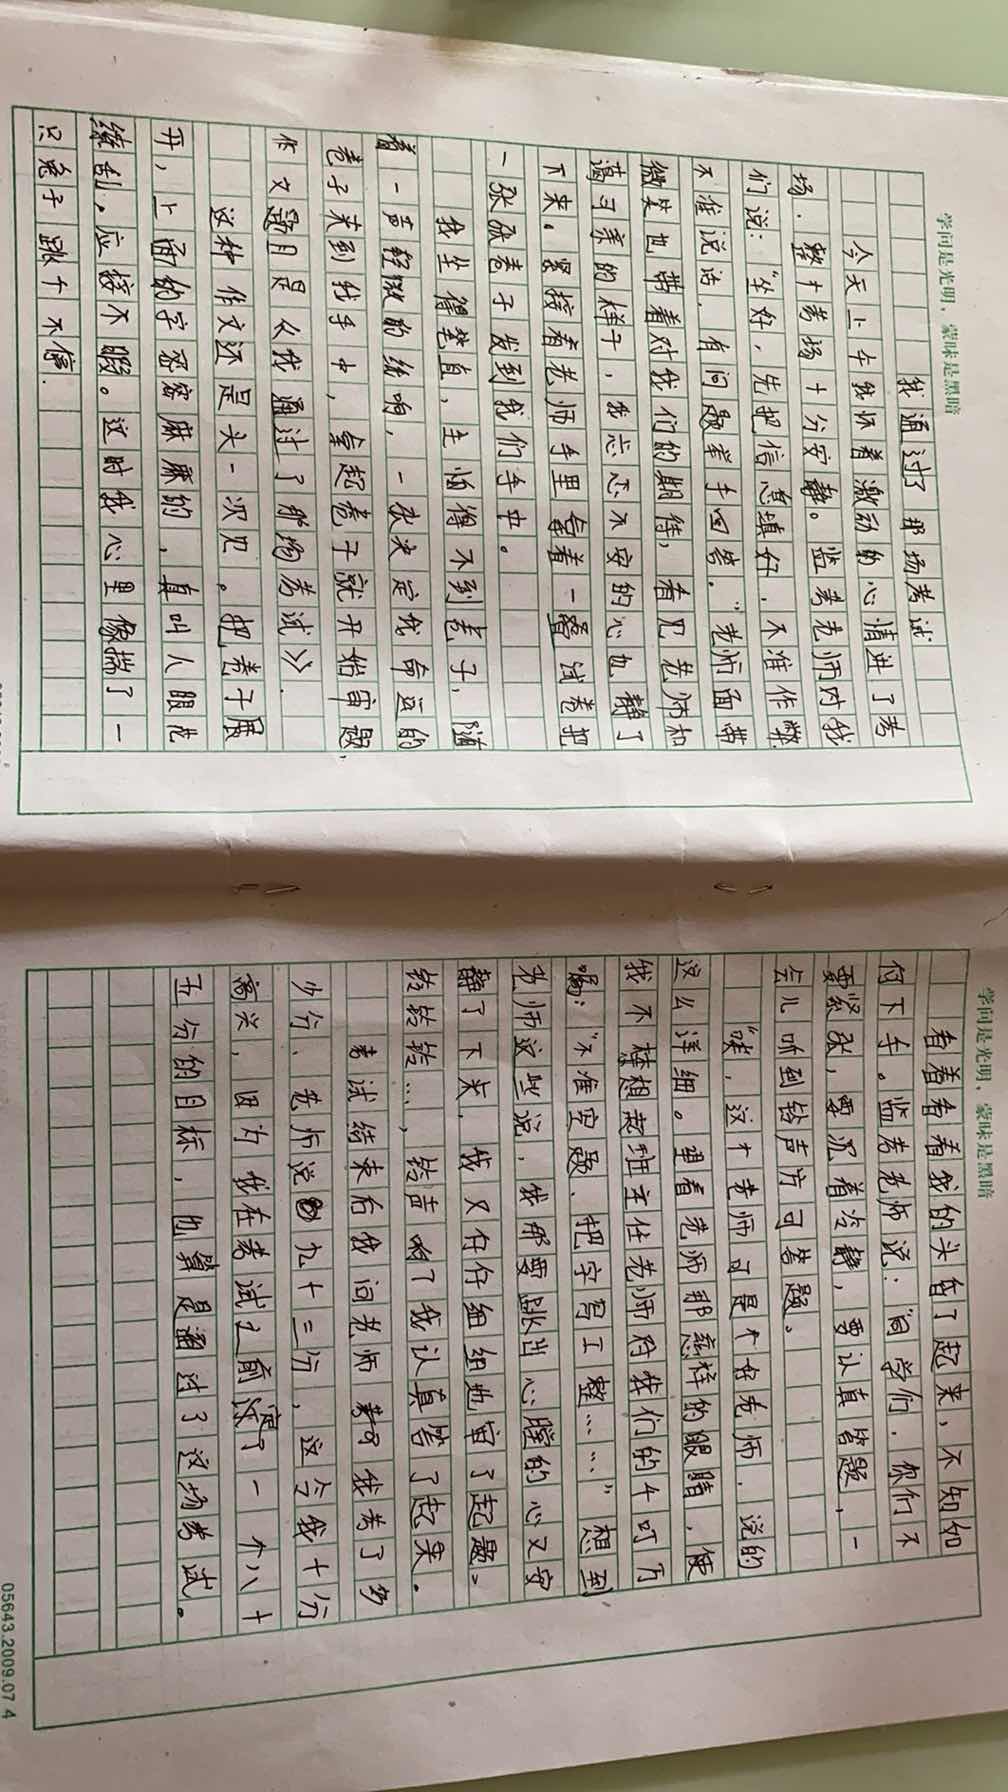 学问是光明，蒙昧是黑暗
我通过了那场考试
今天上午我怀着激动的心情进了考
场．整个考场十分安静。监考老师对我
们说：“坐好，先把信息填好．不准作弊
不准说话．有问题举手回答．”老师面带
微笑也带着对我们的期待，看见老师和
蔼可亲的样子，我忐忑不安的心也静了
下来．紧接着老师手里拿着一叠试卷把
一张张卷子发到我们手中。
我坐得笔直，生怕得不到卷子，随
着一声轻微的纸响，一张决定我命运的
卷子来到我手中，拿起卷子就开始审题，
作文题目是《我通过了那场考试》．
这种作文还是头一次见。把卷子展
开，上面的字密密麻麻的，真叫人眼花
缭乱，应接不暇。这时我心里像揣了一
只兔子跳个不停．
学问是光明，蒙昧是黑暗
看着看着我的头昏了起来，不知如
何下手。监考老师说：“同学们．你们不
要紧张，要沉着冷静，要认真答题，一
会儿听到铃声方可答题。
“唉，这个老师可是个好老师．说的
这么详细。望着老师那慈祥的眼睛，使
我不禁想起班主任老师对我们的千叮万
嘱：“不准空题、把字写工整……”想到
老师这些说，我那要跳出心膛的心又安
静了下来．我又仔仔细细地审了起题。
铃铃铃…，铃声响了我认真答了起来．
考试结束后我问老师我考了多
少分、老师说九十三分，这令我十分
高兴，因为我在考试之前定了一个八十
五分的目标，也算是通过了这场考试。
05643.2009.07 4